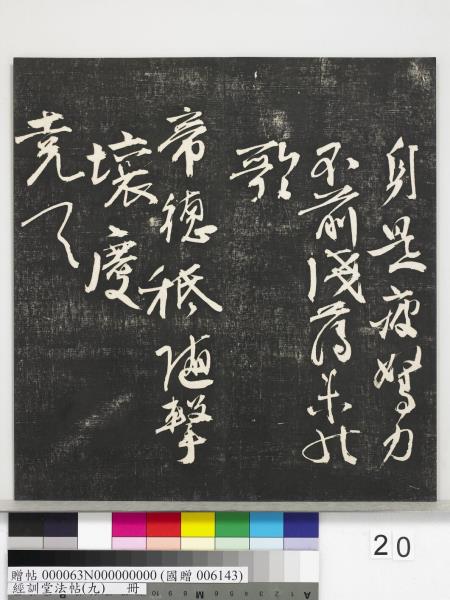 身是疲駑力
不前淺薄未能
歌
帝德祗隨擊
壤慶
堯天
20
贈帖 000063N000000000 (國贈 006143)
經訓堂法帖(九) 冊